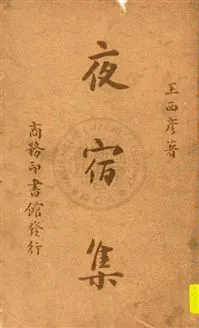 王西彥著
夜宿集
商務印書館發行